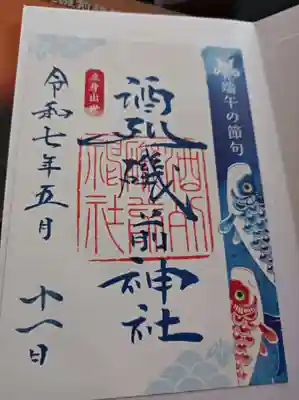 端午の節句
立身出世
酒列磯前神社
酒列磯前神社
令和七年五月
十一日